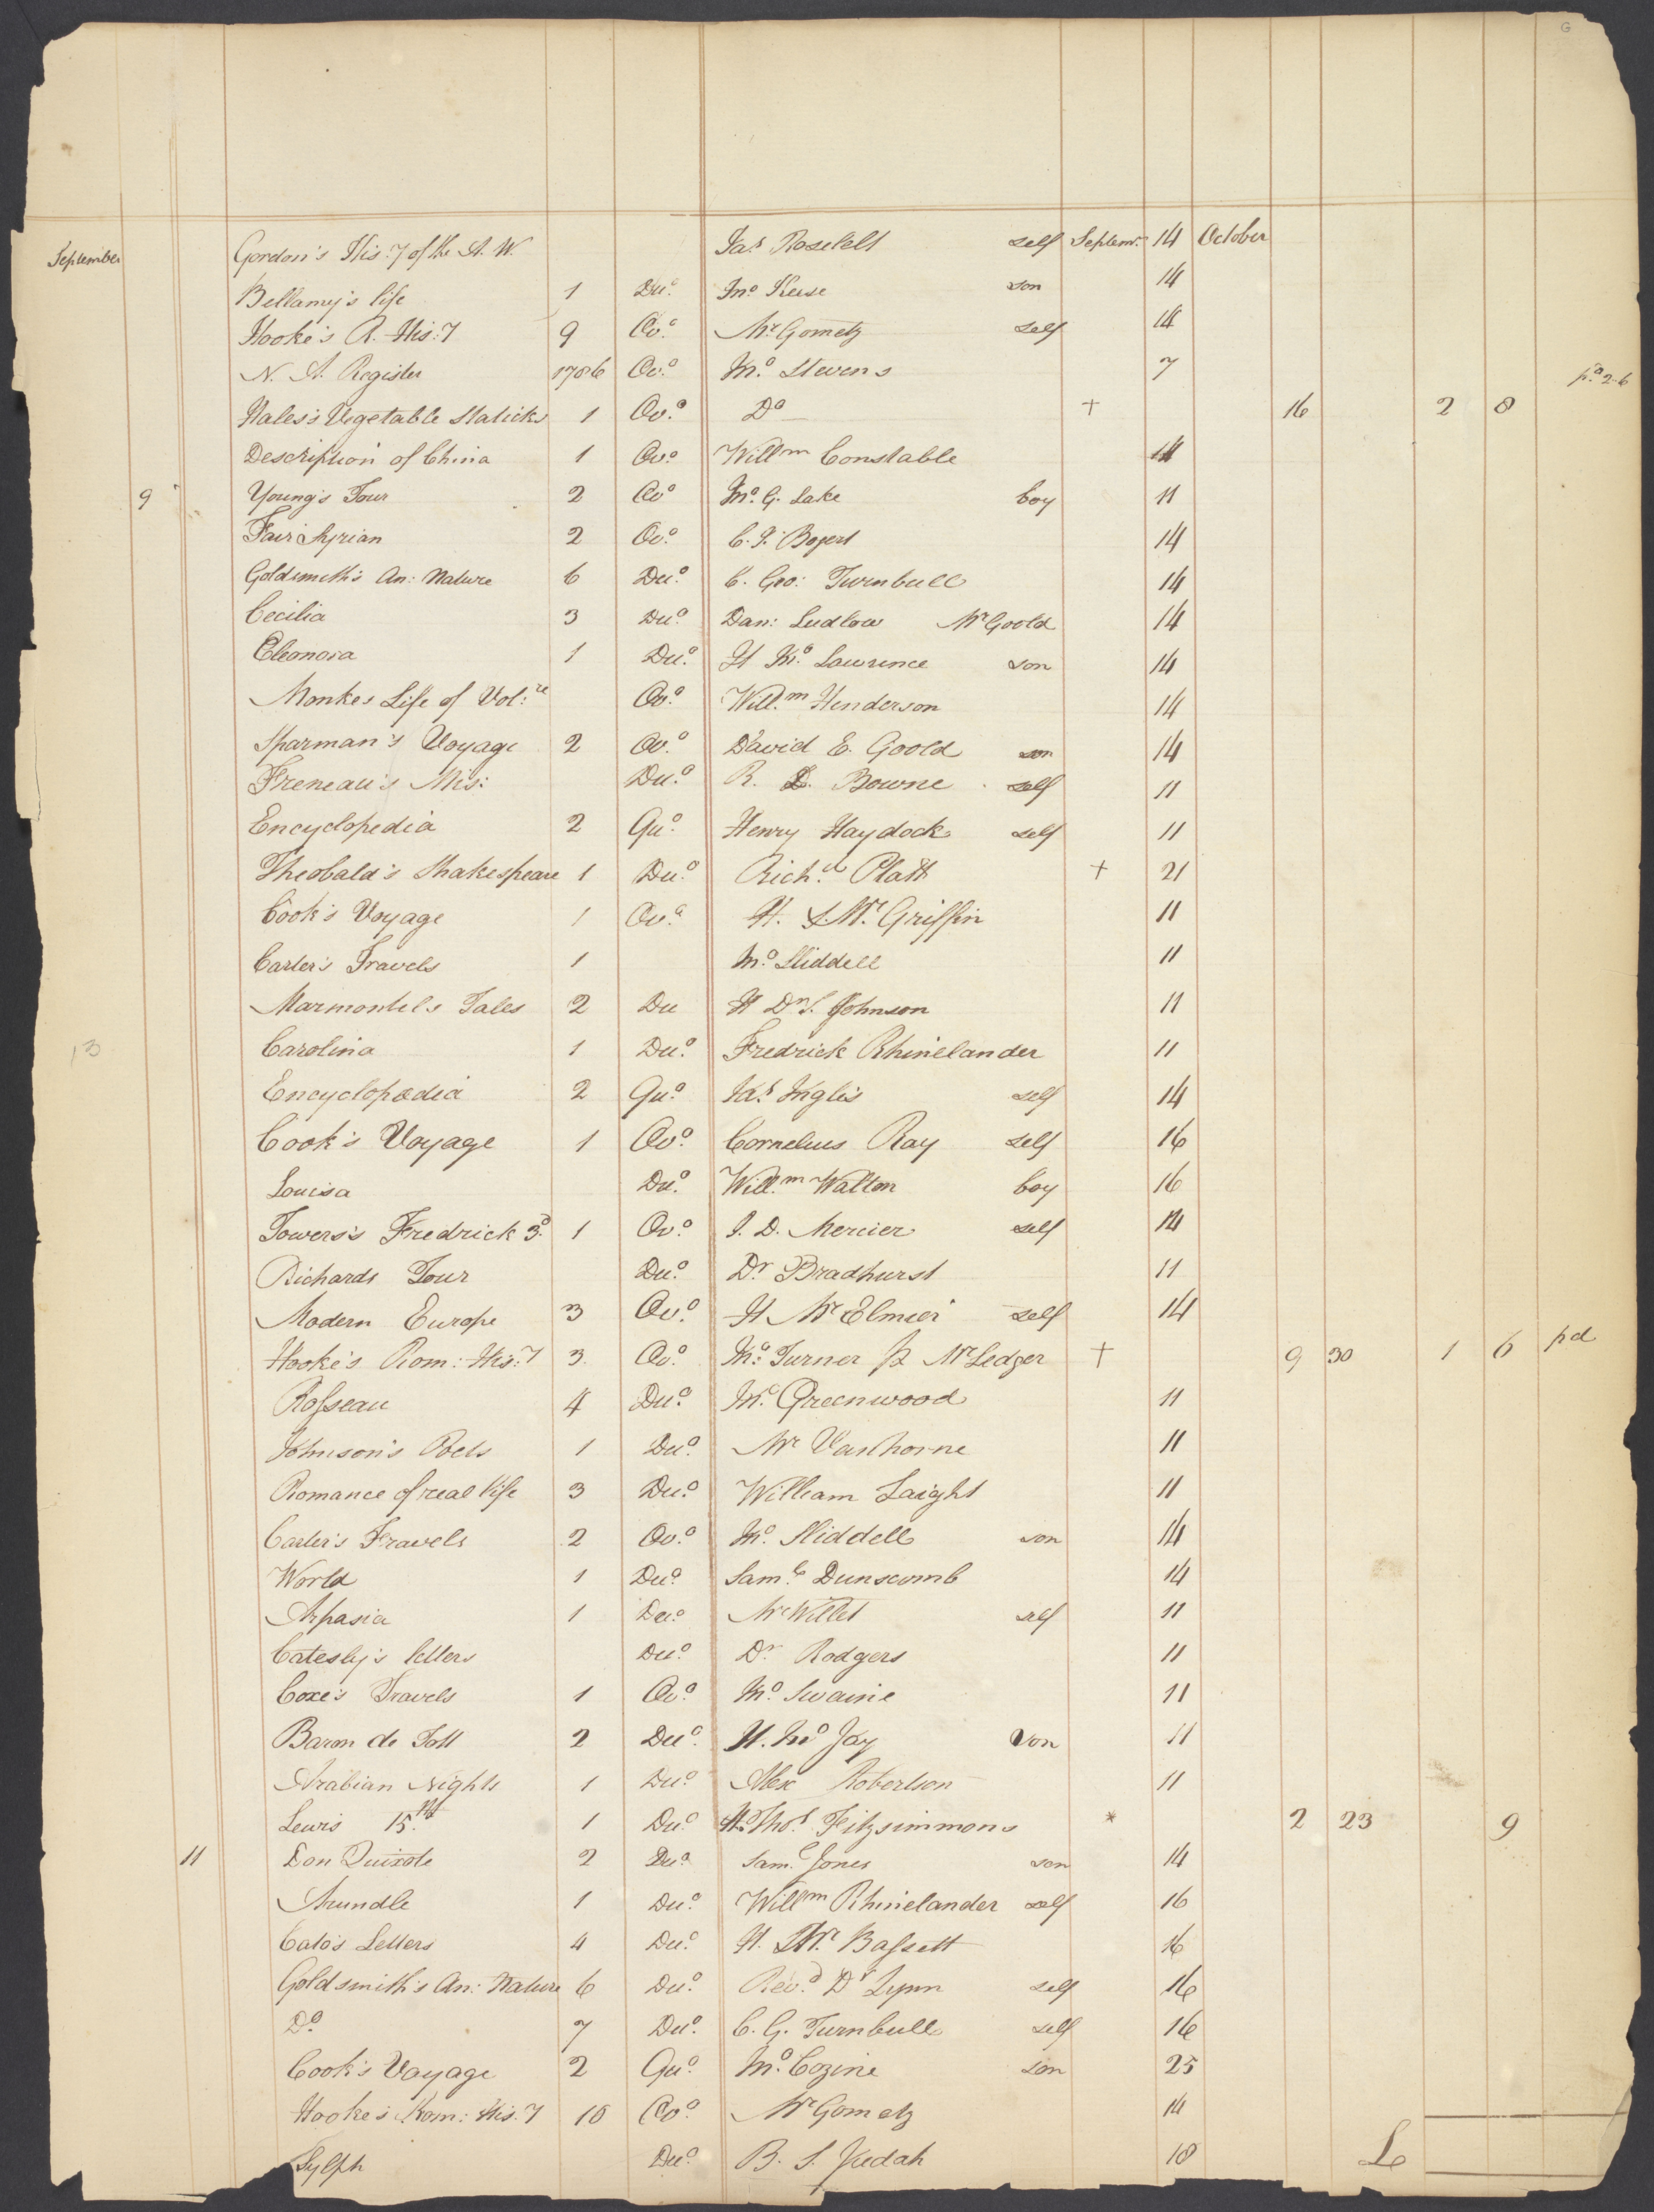 G
September Gordon's His:y of the A. W. Jas. Roselelt self Septemr. 14 October
Bellamy's life 1 Duo. Jno. Keese son 14
Hooke's R. His:y 9 Ovo. Mr Gometz self 14
N. A. Register 1786 Ovo. Jno. Stevens 7 pd 2..6
Hales's Vegetable Staticks 1 Ovo. Do + 16 2 8
Description of China 1 Ovo Willm Constable 14
9 Young's Tour 2 Ovo Jno. G. Lake boy 11
Fair Syrian 2 Ovo. C. J. Bogert 14
Goldsmith's An: Nature 6 Duo. C. Geo: Turnbull 14
Cecilia 3 Duo. Dan: Ludlow Mr Goold 14
Eleonora 1 Duo. H Jno. Lawrence son 14
Monkes Life of Vol:re Ovo. Will.m Henderson 14
Sparman's Voyage 2 Ovo. David E. Goold son 14
Freneau's Mis: Duo. R. L. Bowne self 11
Encyclopedia 2 Quo. Henry Haydock self 11
Theobald's Shakespeare 1 Duo. Rich.d Platt + 21
Cook's Voyage 1 Ovo. H. S. Mr. Griffin 11
Carter's Travels 1 Jno. Sliddell 11
Marmontel's Tales 2 Du H Dr. S. Johnson 11
13 Carolina 1 Duo. Fredrick Rhinelander 11
Encyclopædia 2 Quo. Jas. Inglis self 14
Cook's Voyage 1 Ovo. Cornelius Ray self 16
Louisa Duo. Will.m Walton boy 16
Towers's Fredrick 3d. 1 Ovo. J. D. Mercier self 14
Richards Tour Duo. Dr Bradhurst 11
Modern Europe 3 Ovo. H Mr Elmier self 14
Hooke's Rom: His:y 3 Ovo. Jno. Turner Mr Ledger + 9 30 1 6 pd
Rosseau 4 Duo. Jno. Greenwood 11
Johnson's Poets 1 Duo. Mr VanHorne 11
Romance of real life 3 Duo. William Laight 11
Carter's Travels 2 Ovo. Jno. Sliddell son 14
World 1 Duo. Sam.l Dunscomb 14
Aspasia 1 Duo. Mr Willet self 11
Catesby's letters Duo. Dr Rodgers 11
Coxe's Travels 1 Ovo. Jno. Swaine 11
Baron de Tott 2 Duo. H. Jno Jay son 11
Arabian Nights 1 Duo. Alex Robertson 11
Lewis 15.th 1 Duo. H. Thos. Fitzsimmons * 2 23 9
11 Don Quixote 2 Duo. Sam.l Jones son 14
Arundle 1 Duo. Willm Rhinelander self 16
Cato's Letters 4 Duo. H. Mr. Bassett 16
Goldsmith's An: Nature 6 Duo. Revd. Dr Lynn self 16
Do. 7 Duo. C. G. Turnbull self 16
Cook's Voyage 2 Quo. Jno. Cozine son 25
Hooke's Rom: His:y 10 Ovo. Mr Gometz 14
Sylph Duo. B. S. Judah 18 L